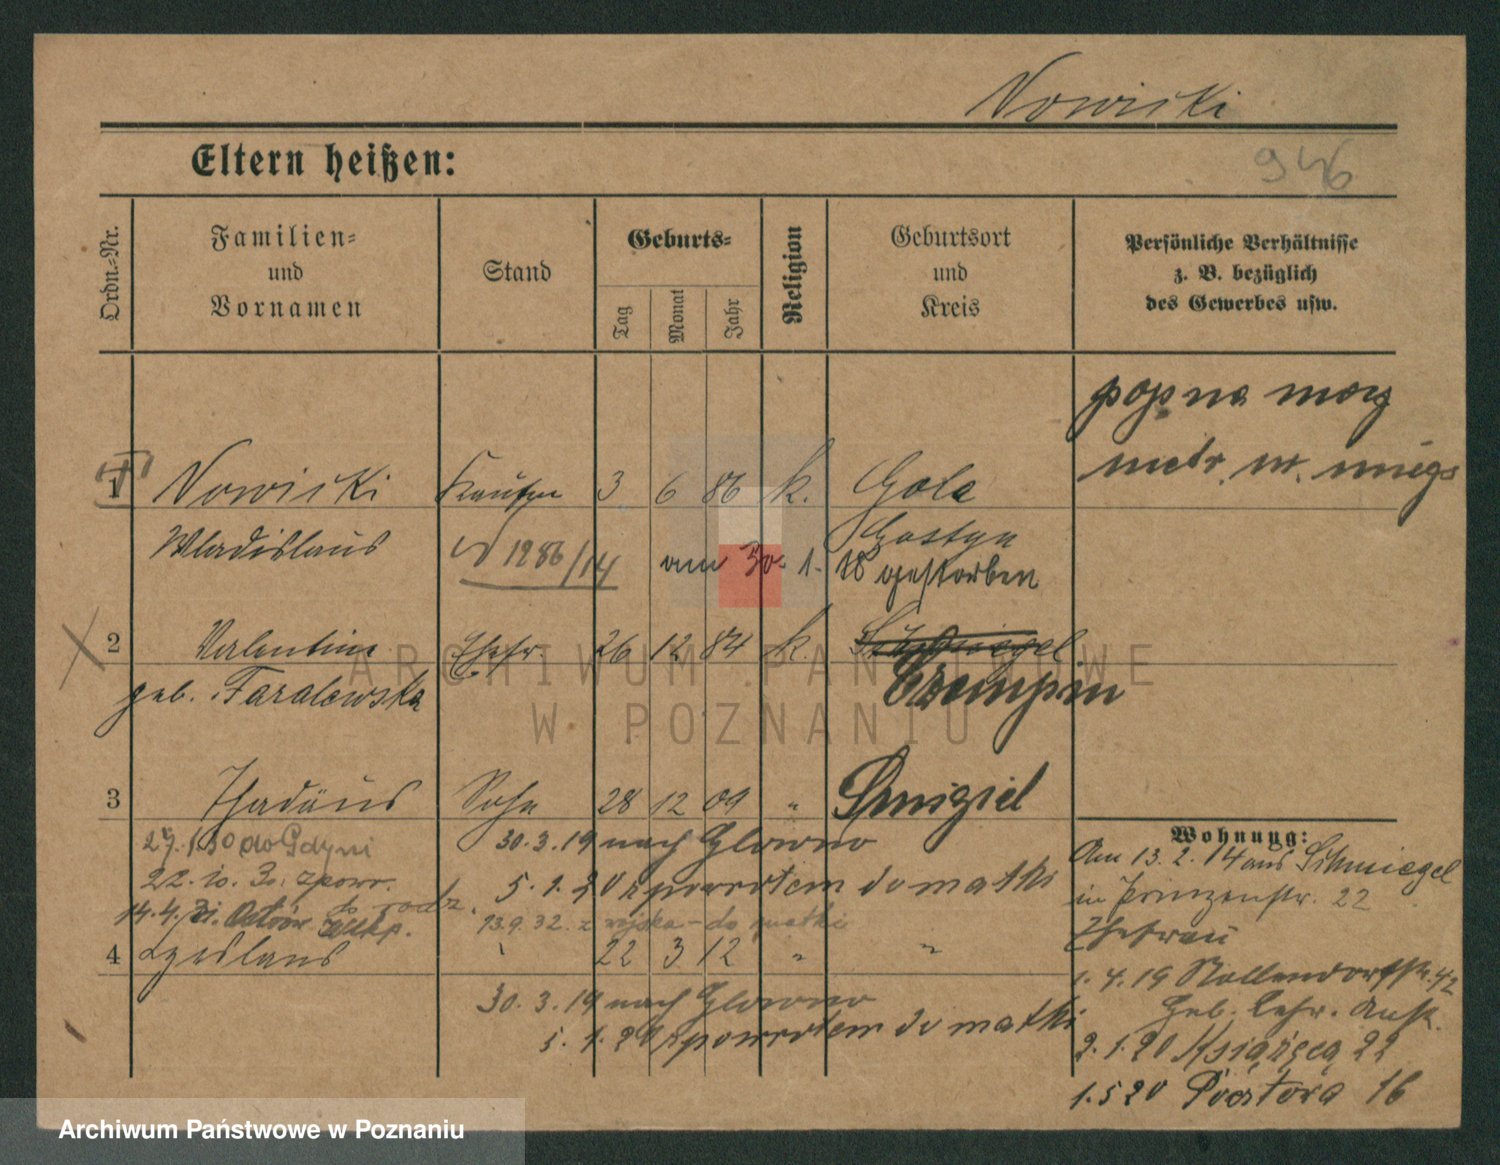 Nowicki
946
Eltern heißen:
Ordn.-Nr.
Familien-
und
Vornamen
Stand
Geburts-
Tag
Monat
Jahr
Religion
Geburtsort
und
Kreis
Persönliche Verhältnisse
z. B. bezüglich
des Gewerbes usw.
metr. ur.
1 Nowicki Kaufm 3 6 86 k. Gola
Wladislaus 1286/14 Gostyn
am 30. 1. 18 gestorben
2 Valentine Ehefr. 26 12 84 k. Schmiegel
geb. Taralewska Czempin
3 Thadäus Sohn 28 12 09 " Smigiel
30 do Gdyni
30.3.19 nach Glowno
22. 10. 30. zpowr.
5. 1. 20 zpowrotem do matki
14.4. Ostrów Wlkp.
13.9.32. z wojska - do matki
4 Czeslaus 22 3 12 " "
30.3.19 nach Glowno
5. 1. 20 zpowrotem do matki
Wohnung:
Am 13. 2. 14 aus Schmiegel
in Prinzenstr. 22
Ehefrau
1. 4. 19 Nollendorfstr. 42
2. 1. 20 Książęca 22
1. 5 20 Pocztowa 16
ARCHIWUM PAŃSTWOWE
W POZNANIU
Archiwum Państwowe w Poznaniu